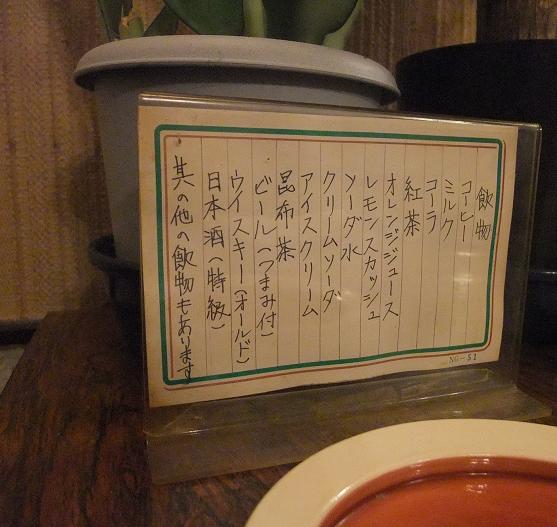 飲物
コーヒー
ミルク
コーラ
紅茶
オレンジジュース
レモンスカッシュ
ソーダ水
クリームソーダ
アイスクリーム
昆布茶
ビール(つまみ付)
ウイスキー(オールド)
日本酒(特級)
其の他の飲物もあります
NG-51